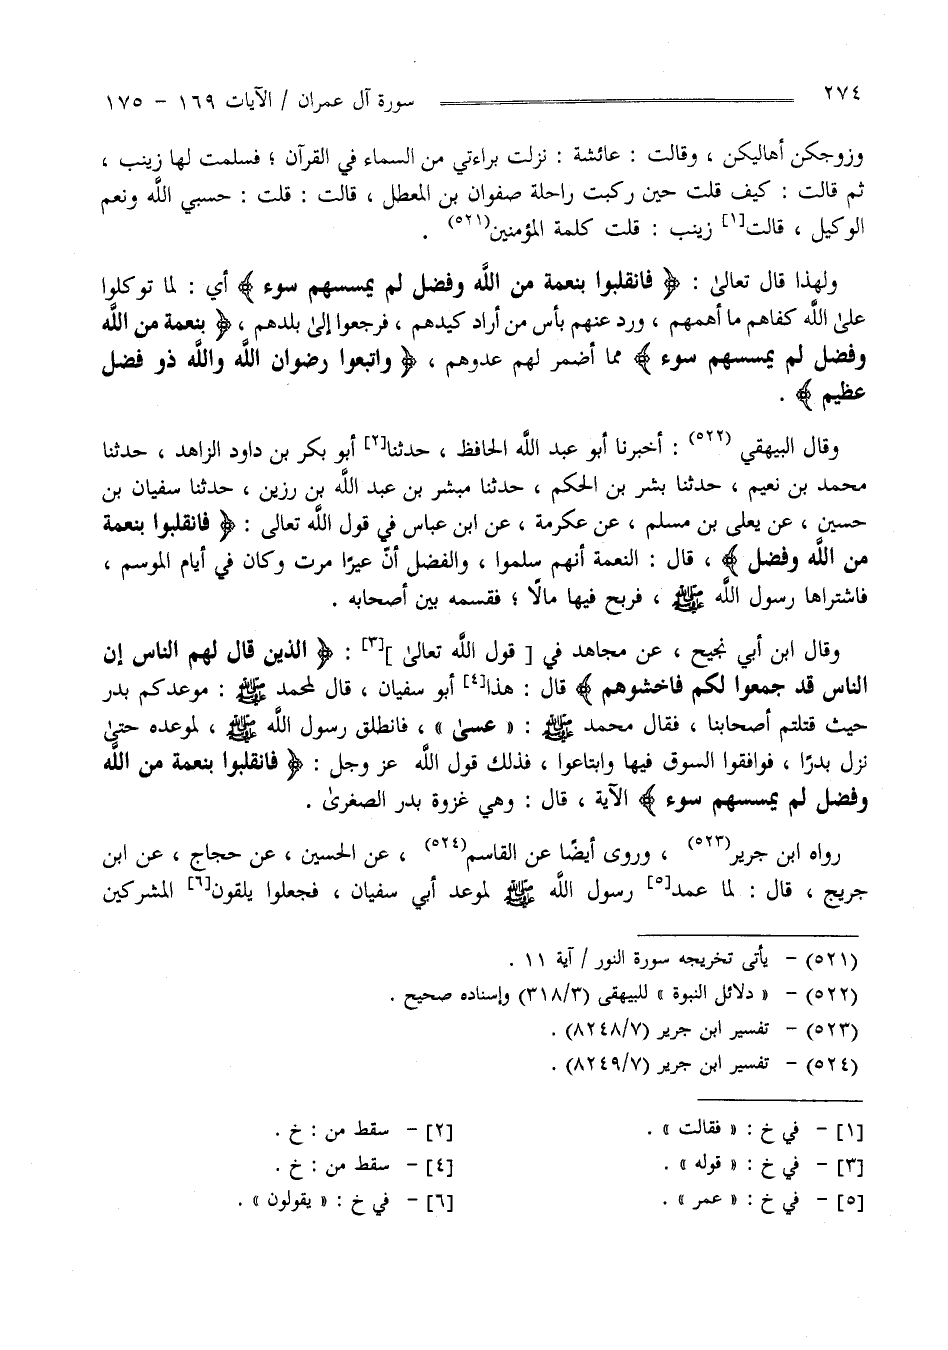 ٢٧٤ سورة آل عمران / الآيات ١٦٩ - ١٧٥
وزوجكن أهاليكن ، وقالت : عائشة : نزلت براءتي من السماء في القرآن ؛ فسلمت لها زينب ،
ثم قالت : كيف قلت حين ركبت راحلة صفوان بن المعطل ، قالت : قلت : حسبي اللَّه ونعم
الوكيل ، قالت[١] زينب : قلت كلمة المؤمنين(٥٢١) .
ولهذا قال تعالىٰ : ﴿ فانقلبوا بنعمة من اللَّه وفضل لم يمسسهم سوء ﴾ أي : لما توكلوا
علىٰ اللَّه كفاهم ما أهمهم ، ورد عنهم بأس من أراد كيدهم ، فرجعوا إلىٰ بلدهم ، ﴿ بنعمة من اللَّه
وفضل لم يمسسهم سوء ﴾ مما أضمر لهم عدوهم ، ﴿ واتبعوا رضوان اللَّه واللَّه ذو فضل
عظيم ﴾ .
وقال البيهقي (٥٢٢) : أخبرنا أبو عبد اللَّه الحافظ ، حدثنا[٢] أبو بكر بن داود الزاهد ، حدثنا
محمد بن نعيم ، حدثنا بشر بن الحكم ، حدثنا مبشر بن عبد اللَّه بن رزين ، حدثنا سفيان بن
حسين ، عن يعلى بن مسلم ، عن عكرمة ، عن ابن عباس في قول اللَّه تعالى : ﴿ فانقلبوا بنعمة
من اللَّه وفضل ﴾ ، قال : النعمة أنهم سلموا ، والفضل أنّ عيرًا مرت وكان في أيام الموسم ،
فاشتراها رسول اللَّه ﷺ ، فربح فيها مالًا ؛ فقسمه بين أصحابه .
وقال ابن أبي نجيح ، عن مجاهد في [ قول اللَّه تعالىٰ ][٣] : ﴿ الذين قال لهم الناس إن
الناس قد جمعوا لكم فاخشوهم ﴾ قال : هذا[٤] أبو سفيان ، قال لمحمد ﷺ : موعدكم بدر
حيث قتلتم أصحابنا ، فقال محمد ﷺ : « عسىٰ » ، فانطلق رسول اللَّه ﷺ ، لموعده حتىٰ
نزل بدرًا ، فوافقوا السوق فيها وابتاعوا ، فذلك قول اللَّه عز وجل : ﴿ فانقلبوا بنعمة من اللَّه
وفضل لم يمسسهم سوء ﴾ الآية ، قال : وهي غزوة بدر الصغرىٰ .
رواه ابن جرير(٥٢٣) ، وروى أيضًا عن القاسم(٥٢٤) ، عن الحسين ، عن حجاج ، عن ابن
جريج ، قال : لما عمد[٥] رسول اللَّه ﷺ لموعد أبي سفيان ، فجعلوا يلقون[٦] المشركين
(٥٢١) - يأتى تخريجه سورة النور / آية ١١ .
(٥٢٢) - « دلائل النبوة » للبيهقى (٣١٨/٣) وإسناده صحيح .
(٥٢٣) - تفسير ابن جرير (٨٢٤٨/٧) .
(٥٢٤) - تفسير ابن جرير (٨٢٤٩/٧) .
[١] - في خ : « فقالت » . [٢] - سقط من : خ .
[٣] - في خ : « قوله » . [٤] - سقط من : خ .
[٥] - في خ : « عمر » . [٦] - في خ : « يقولون » .